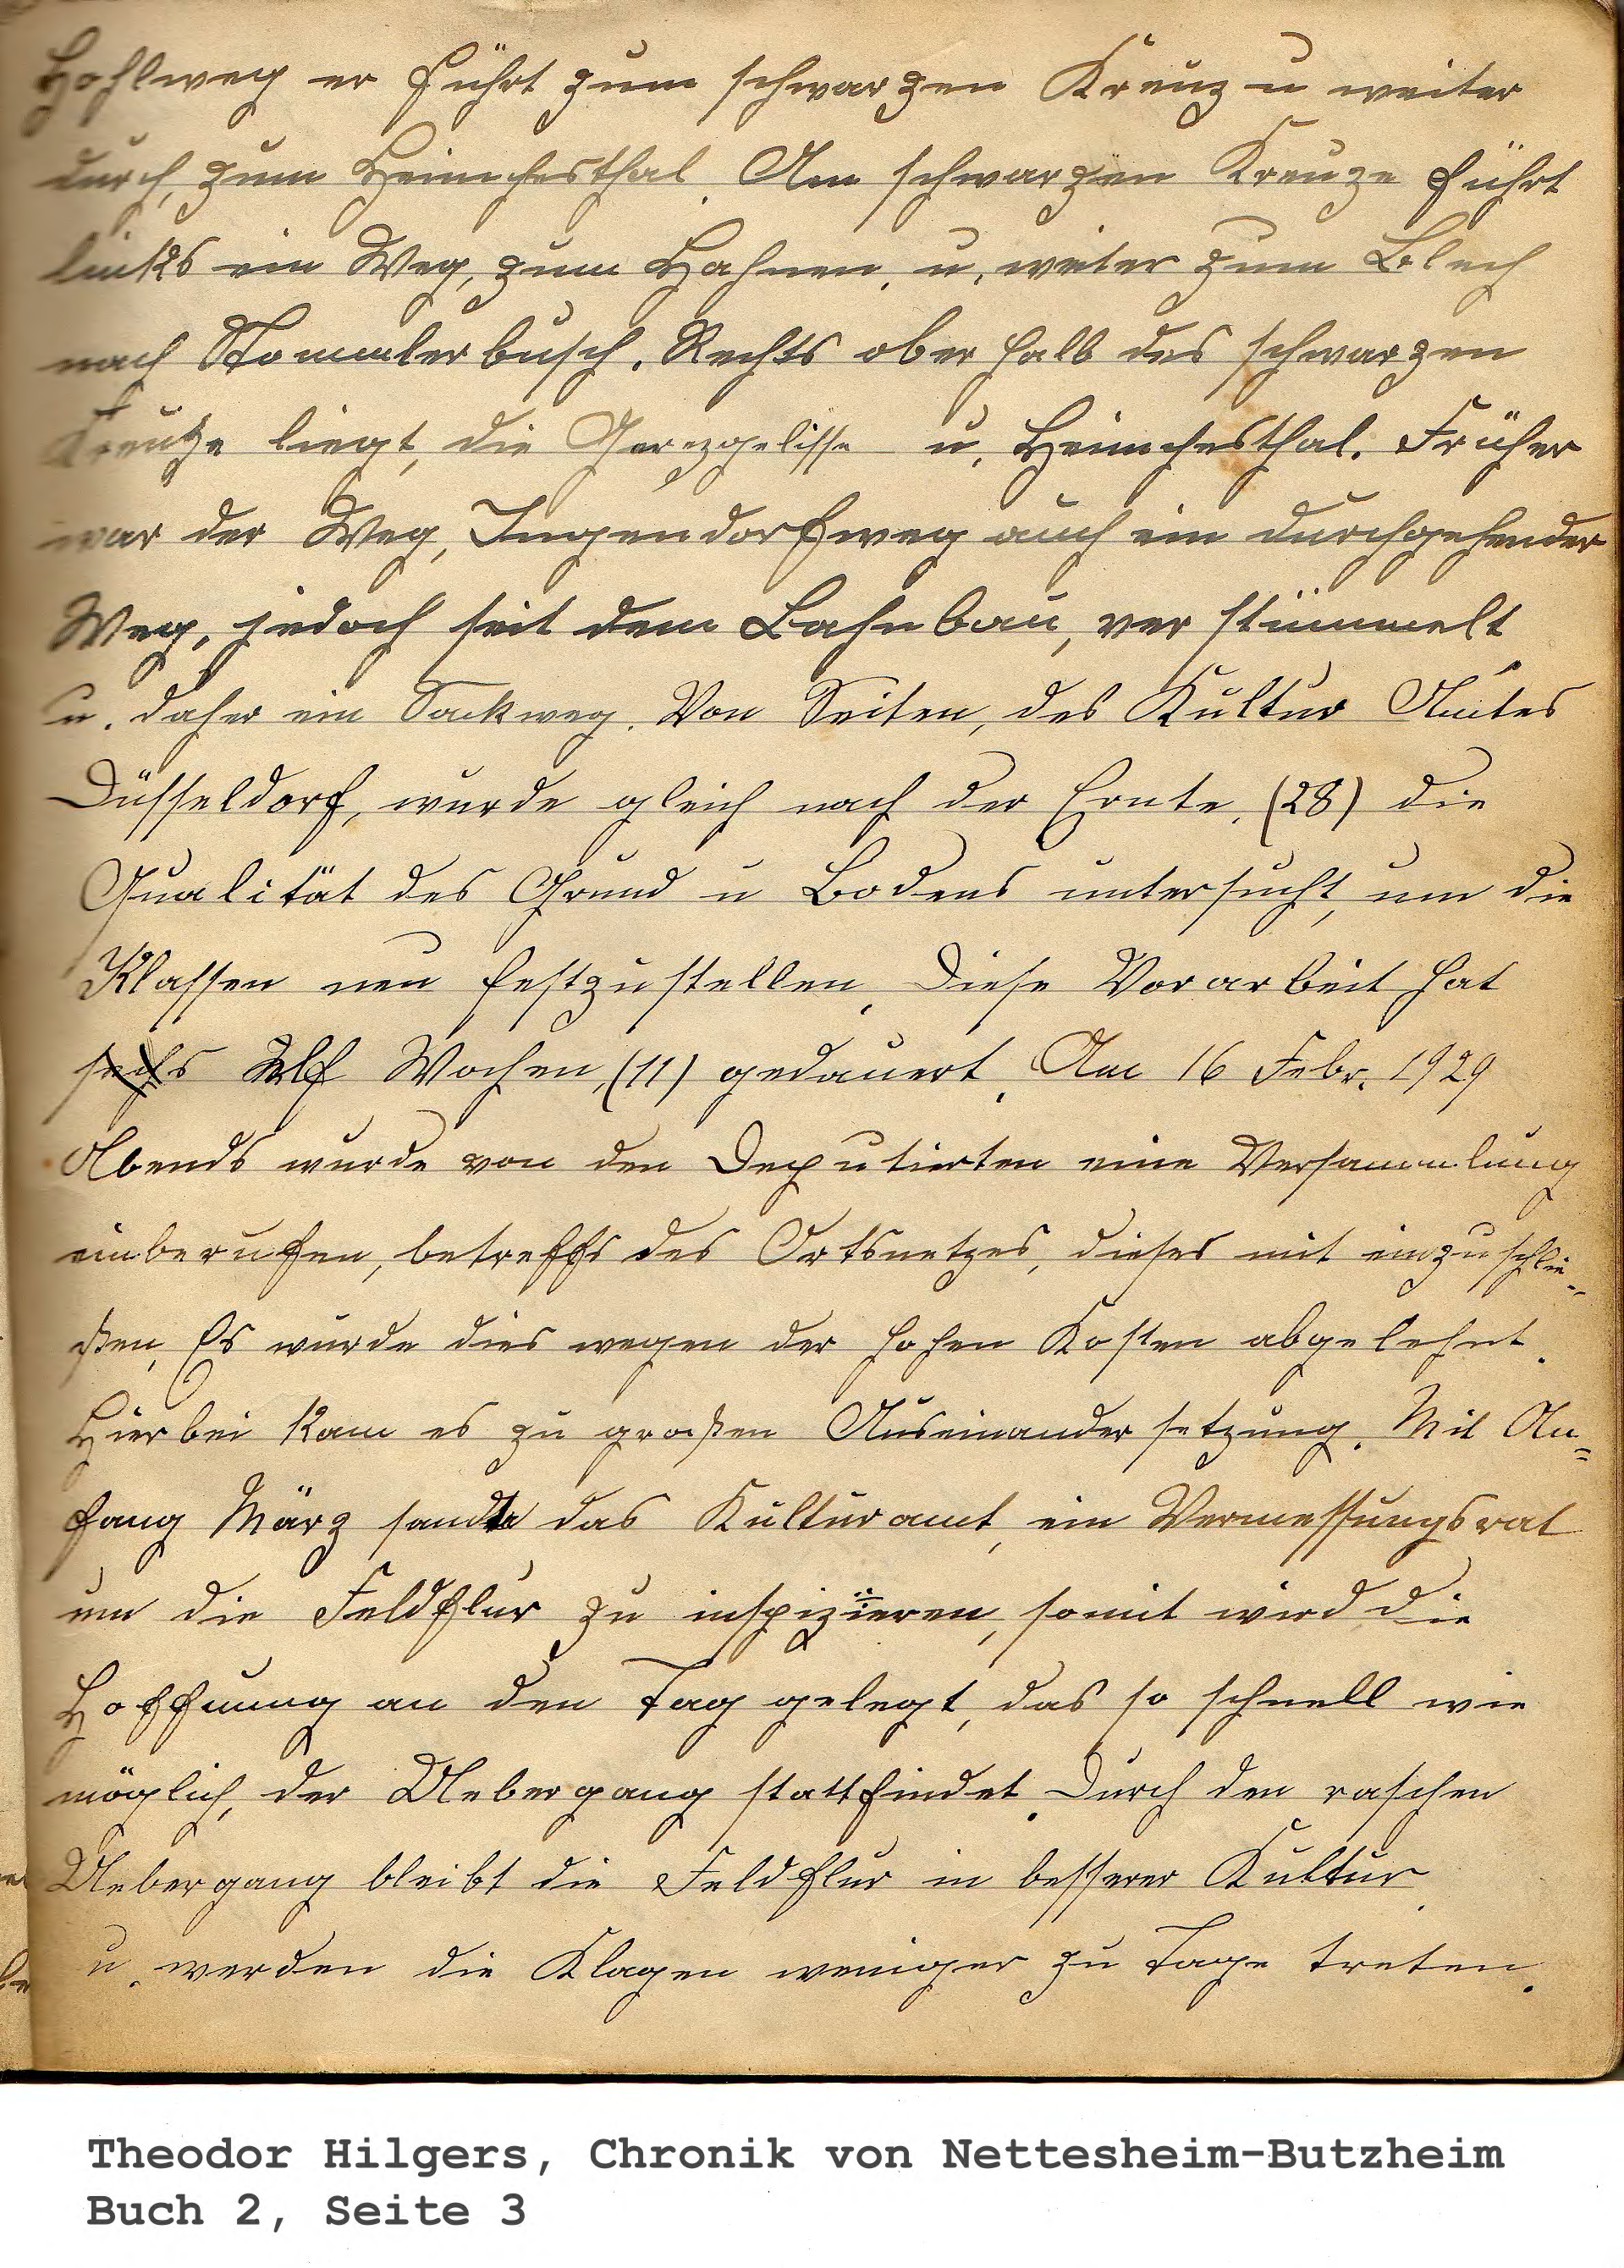 Hohlweg er führt zum schwarzen Kreuz u weiter
durch, zum Heimchesthal. Am schwarzen Kreuze führt
links ein Weg, zum Hahnen, u. weiter zum Blech
nach Stommlerbusch. Rechts oberhalb des schwarzen
Kreutze liegt, die u. Heimchesthal. Früher
war der Weg, Ingendorfweg auch ein durchgehender
Weg, jedoch seit dem Bahnbau, verstümmelt
u. daher ein Sackweg. Von Seiten, des Kultur Amtes
Düsseldorf, wurde gleich nach der Ernte, (28) die
Qualität des Grund u Bodens untersucht, um die
Klassen neu festzustellen. Diese Vorarbeit hat
sechs Elf Wochen, (11) gedauert. Am 16 Febr. 1929
Abends wurde von den Deputierten eine Versammlung
einberufen, betreffs des Ortsnetzes, dieses mit einzuschlie-
ßen, Es wurde dies wegen der hohen Kosten abgelehnt.
Hierbei kam es zu großen Auseinandersetzung. Mit An=
fang März sandte das Kulturamt, ein Vermessungsrat
um die Feldflur zu inspizieren, somit wird die
Hoffnung an den Tag gelegt, das so schnell wie
möglich, der Uebergang stattfindet. Durch den raschen
Uebergang bleibt die Feldflur in besserer Kultur
u. werden die Klagen weniger zu Tage treten.
Theodor Hilgers, Chronik von Nettesheim-Butzheim
Buch 2, Seite 3